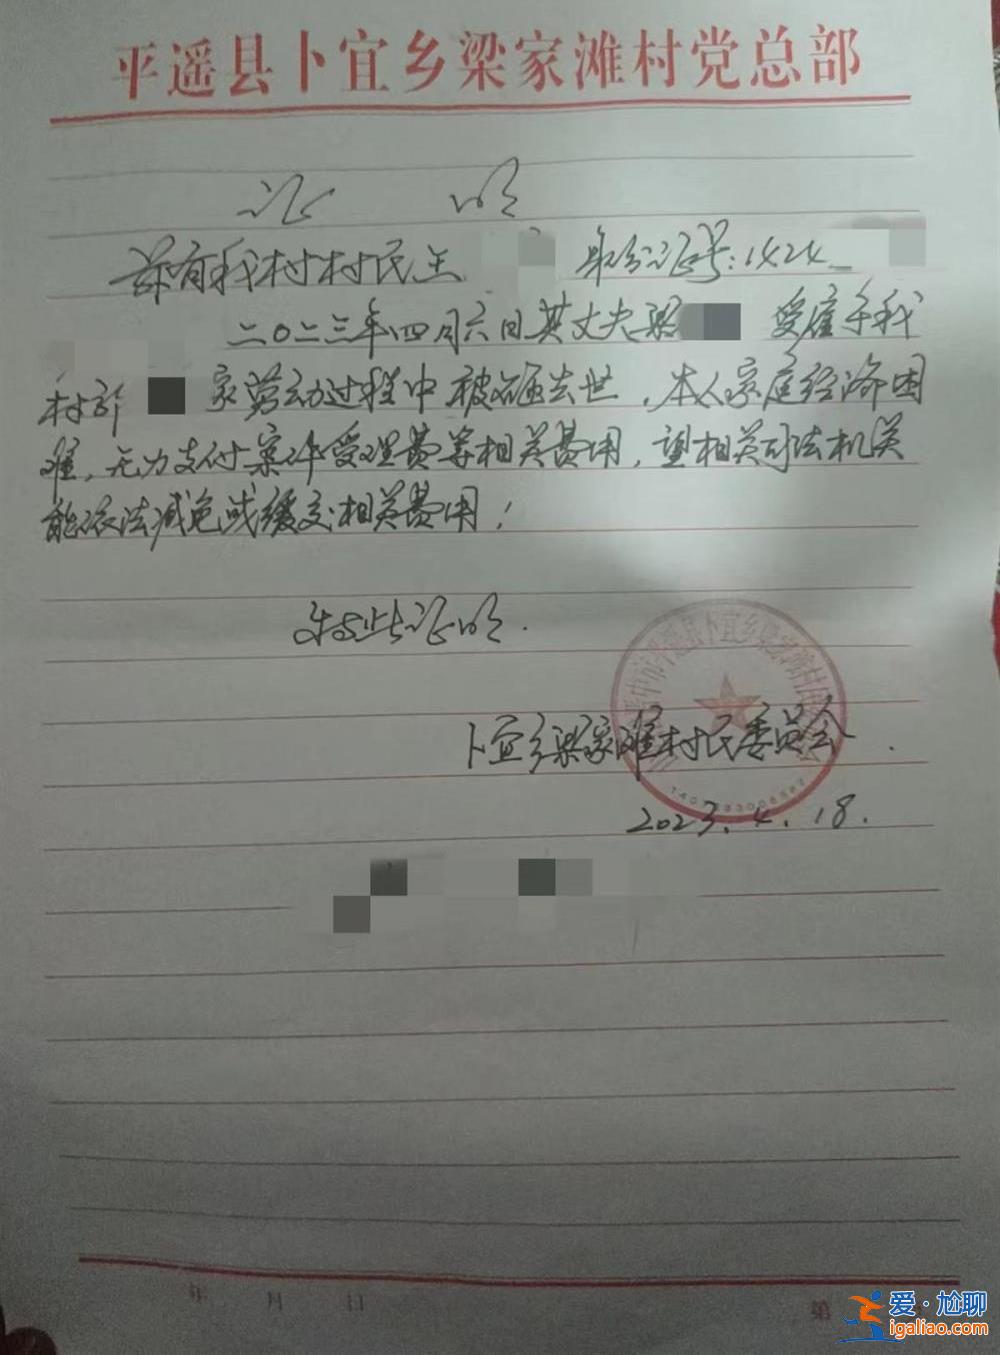 平遥县卜宜乡梁家滩村党总部
证 明
兹有我村村民王 身份证号:1424
二〇二三年四月六日其丈夫梁 受雇于我
村 家劳动过程中被砸去世,本人家庭经济困
难,无力支付案件受理费等相关费用,望相关司法机关
能依法减免或缓交相关费用!
特此证明.
卜宜乡梁家滩村民委员会.
2023.4.18.
年 月 日
第
爱·尬聊
igaliao.com